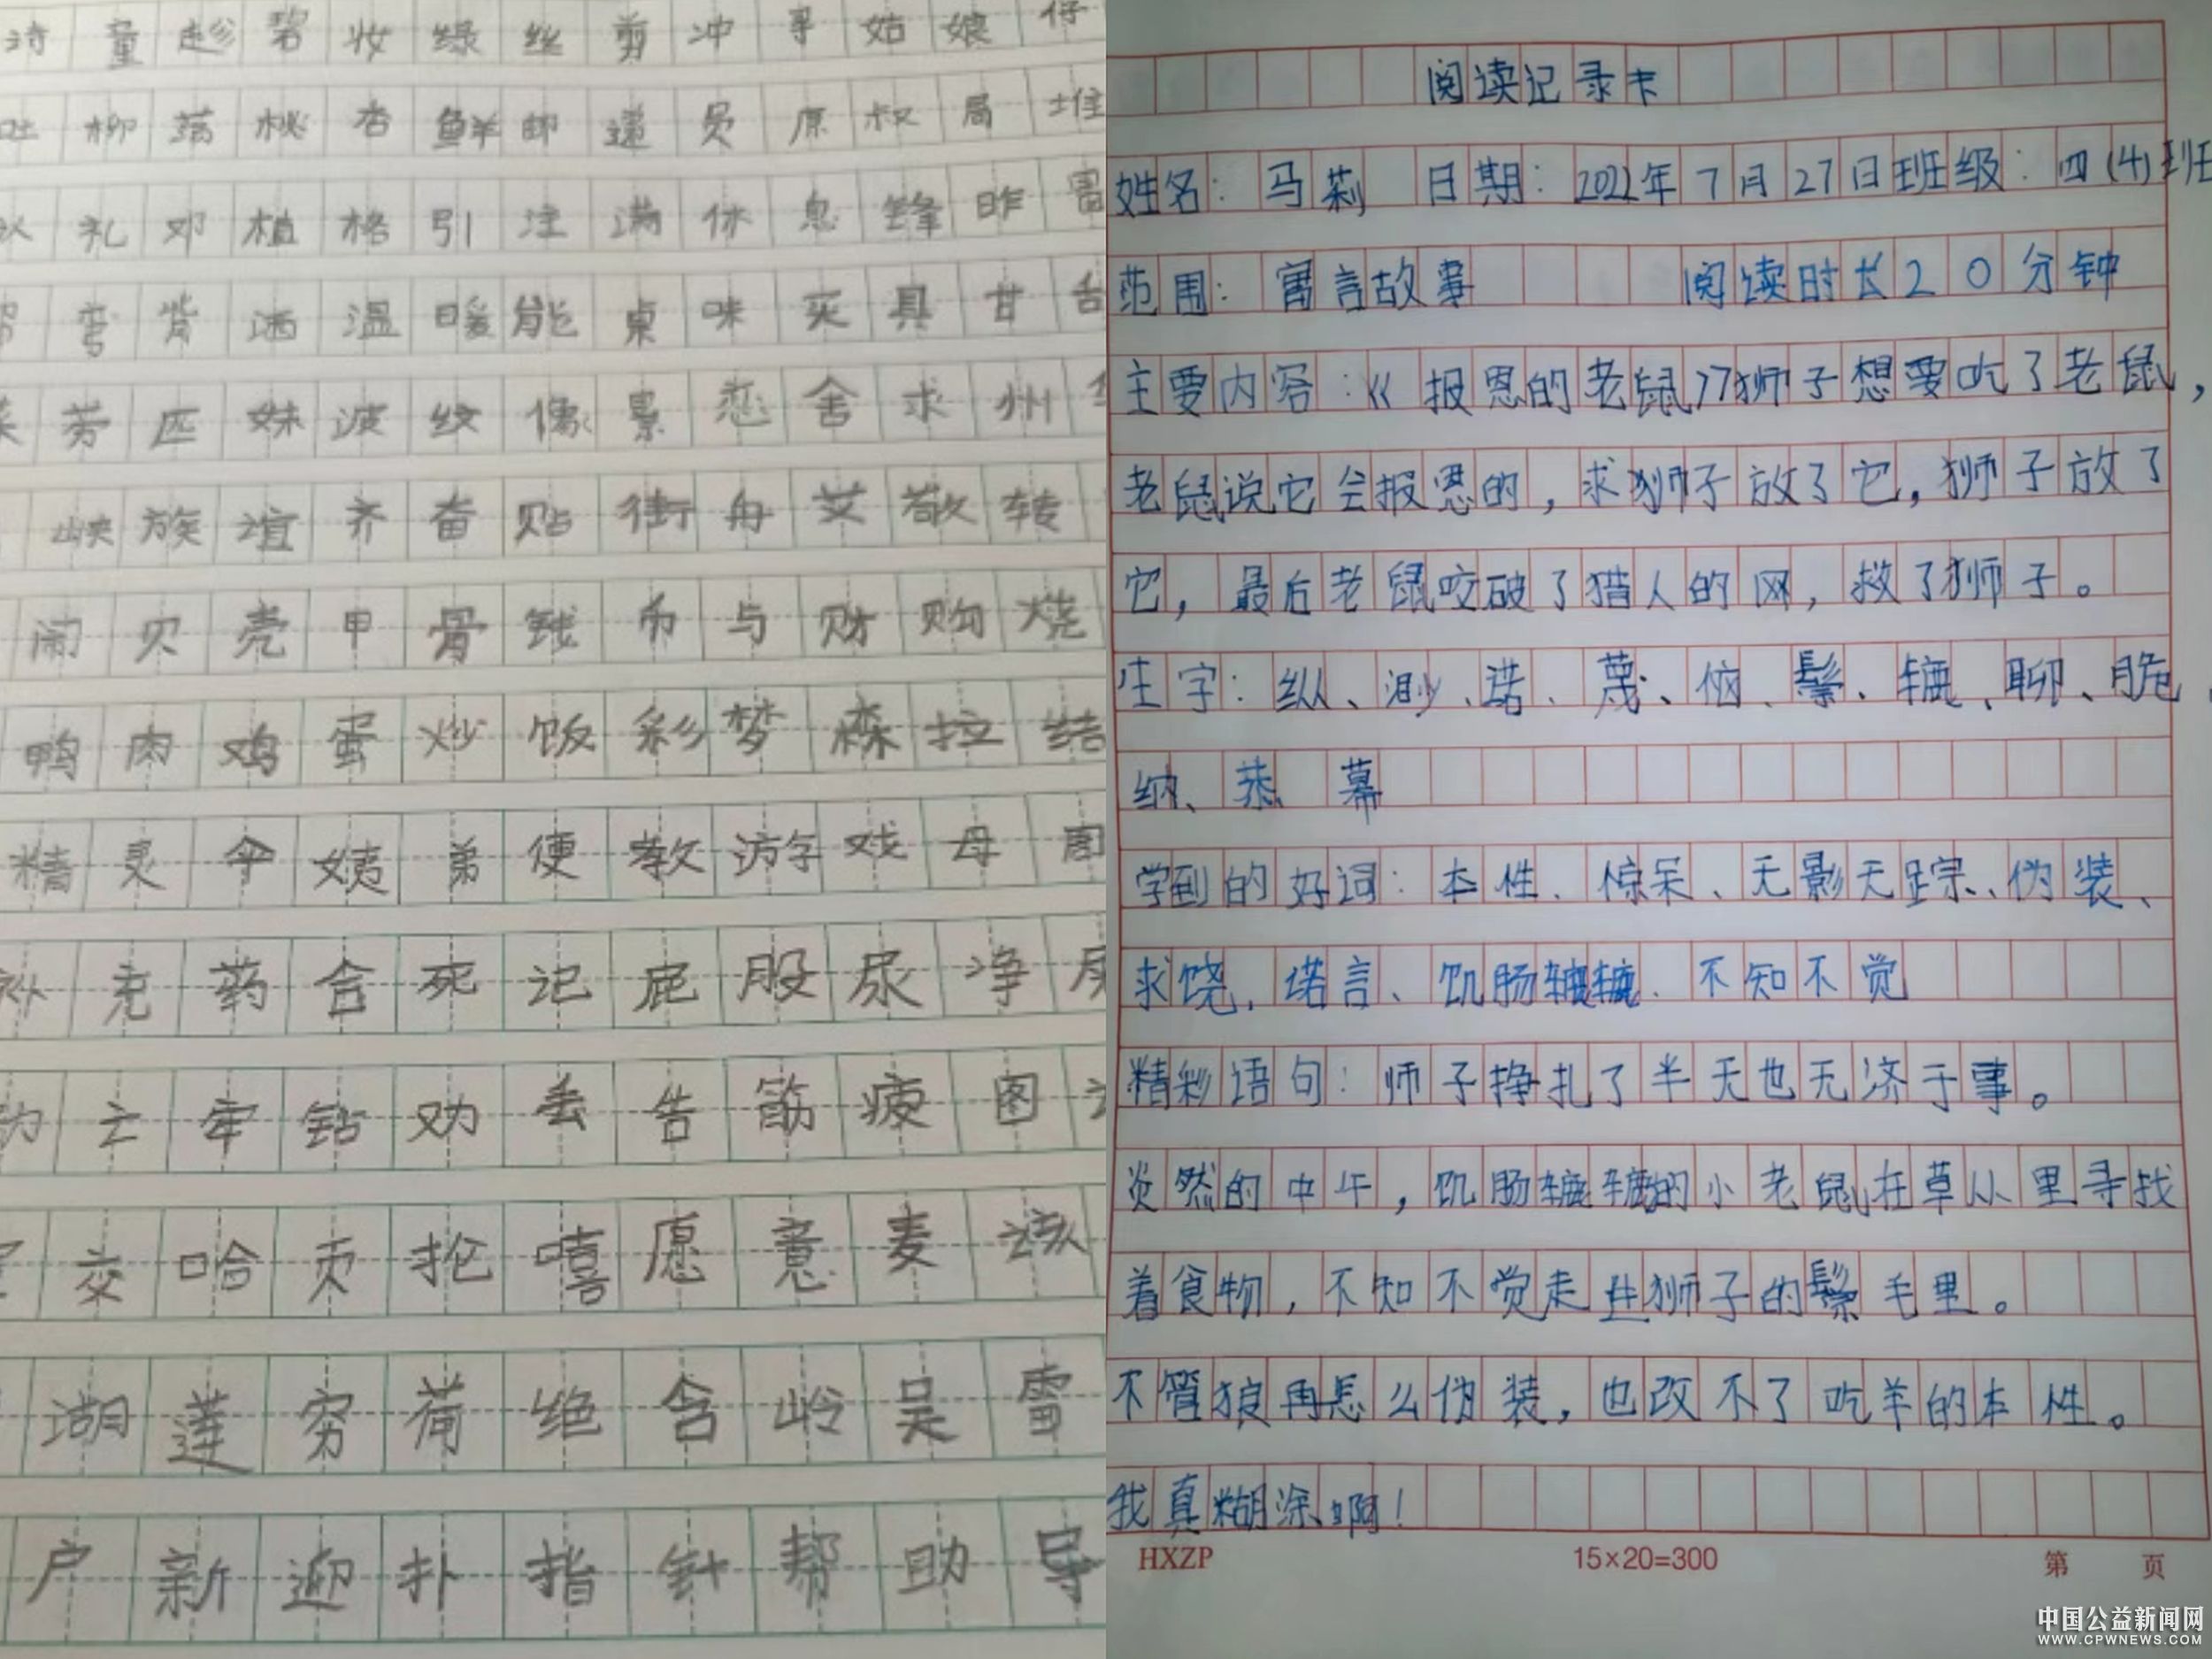 诗 童 趁 碧 妆 绿 丝 剪 冲 寻 姑 娘 仔
吐 柳 荡 桃 杏 鲜 邮 递 员 原 叔 局 堆
礼 邓 植 格 引 注 满 休 息 锋 昨 富
弯 背 洒 温 暖 能 桌 味 买 具 甘 甜
菜 劳 匹 妹 波 纹 像 景 恋 舍 求 州 华
峡 族 谊 齐 奋 贴 街 舟 艾 敬 转
闹 贝 壳 甲 骨 钱 币 与 财 购 烧
鸭 肉 鸡 蛋 炒 饭 彩 梦 森 拉 结
精 灵 伞 姨 弟 便 教 游 戏 母 周
补 充 药 合 死 记 屁 股 尿 净 屎
亡 牢 钻 劝 丢 告 筋 疲 图
交 哈 页 抢 嘻 愿 意 麦 该
湖 莲 穷 荷 绝 含 岭 吴 雪
户 新 迎 扑 指 针 帮 助 导
阅读记录卡
姓名：马莉 日期：2022年7月27日班级：四(4)班
范围：寓言故事 阅读时长20分钟
主要内容：《报恩的老鼠》狮子想要吃了老鼠，
老鼠说它会报恩的，求狮子放了它，狮子放了
它，最后老鼠咬破了猎人的网，救了狮子。
生字：纵、渺、诺、蔑、恼、鬃、辘、聊、脆、
纳、恭、幕
学到的好词：本性、惊呆、无影无踪、伪装、
求饶，诺言、饥肠辘辘、不知不觉
精彩语句：师子挣扎了半天也无济于事。
炎然的中午，饥肠辘辘的小老鼠在草从里寻找
着食物，不知不觉走进狮子的鬃毛里。
不管狼再怎么伪装，也改不了吃羊的本性。
我真糊涂啊！
HXZP 15×20=300 第 页
中国公益新闻网
WWW.CPWNEWS.COM